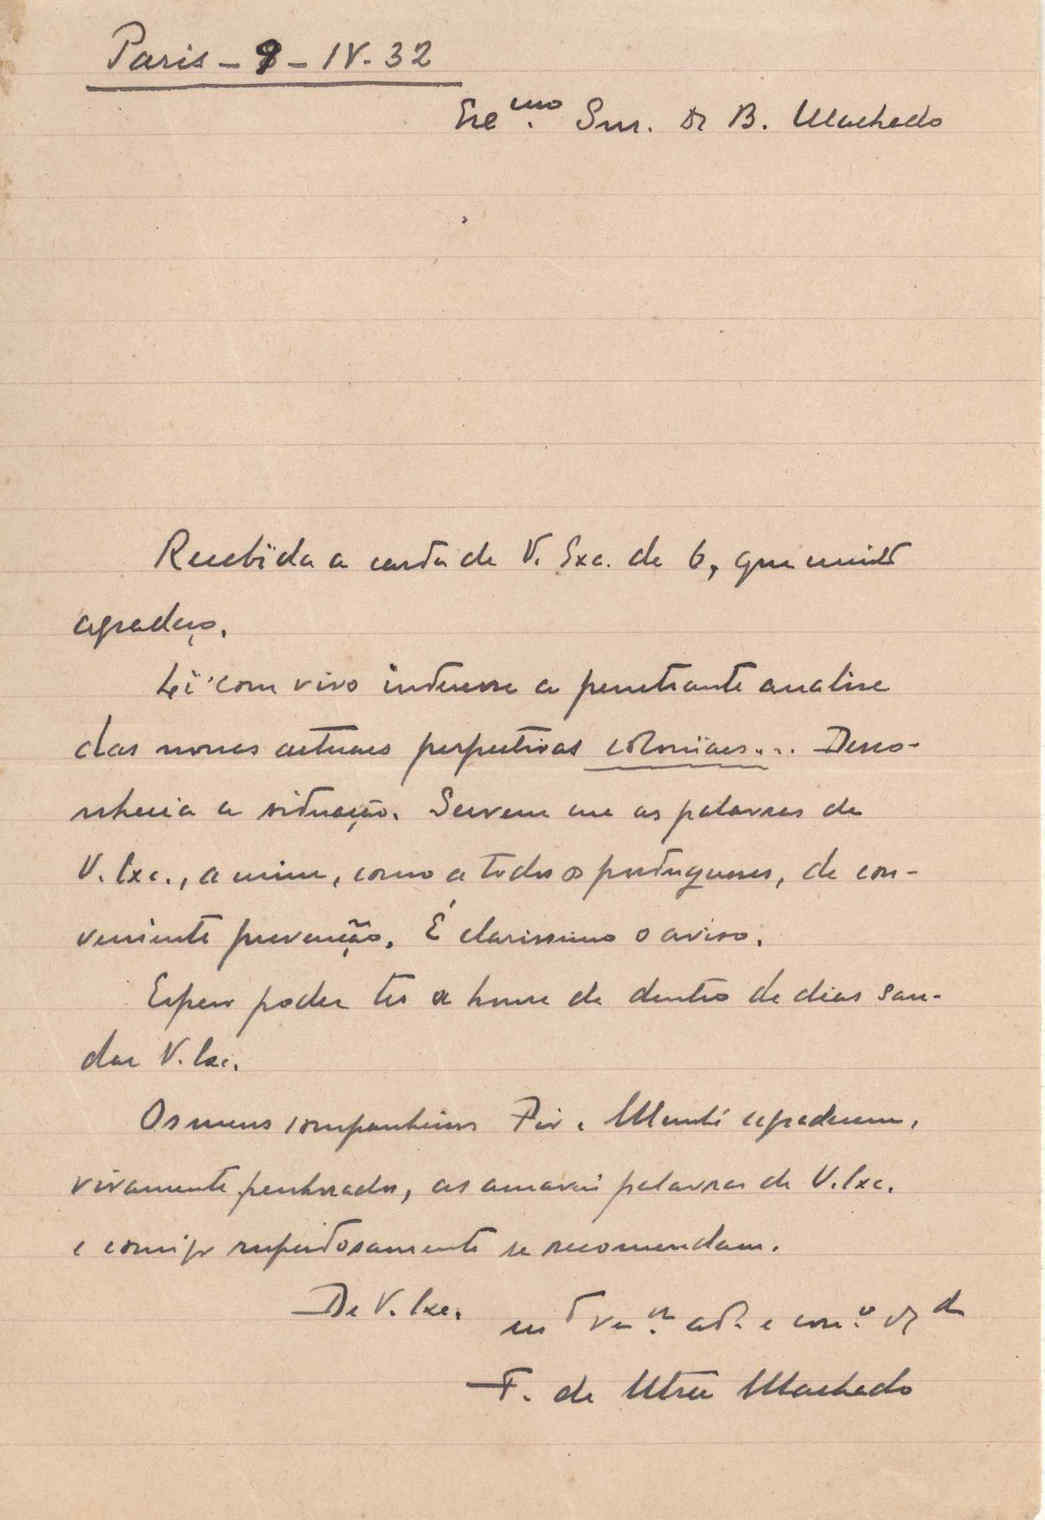 Paris - 8 - IV. 32
Exc.mo Snr. Dr B. Machado
Recebida a carta de V. Exc. de 6, que muito
agradeço.
Li com vivo interesse a penetrante analise
das novas actuaes perspectivas coloniaes... Desco-
nhecia a situação. Servem me as palavras de
V. Exc., a mim, como a todos os portugueses, de con-
veniente prevenção. É clarissimo o aviso.
Espero poder ter a honra de dentro de dias sau-
dar V. Exc.
Os meus companheiros e agradecem,
vivamente penhorados, as amaveis palavras de V. Exc.
e comigo respeitosamente se recomendam.
De V. Exc.
mt ven.or ad.or e
F. de Utra Machado